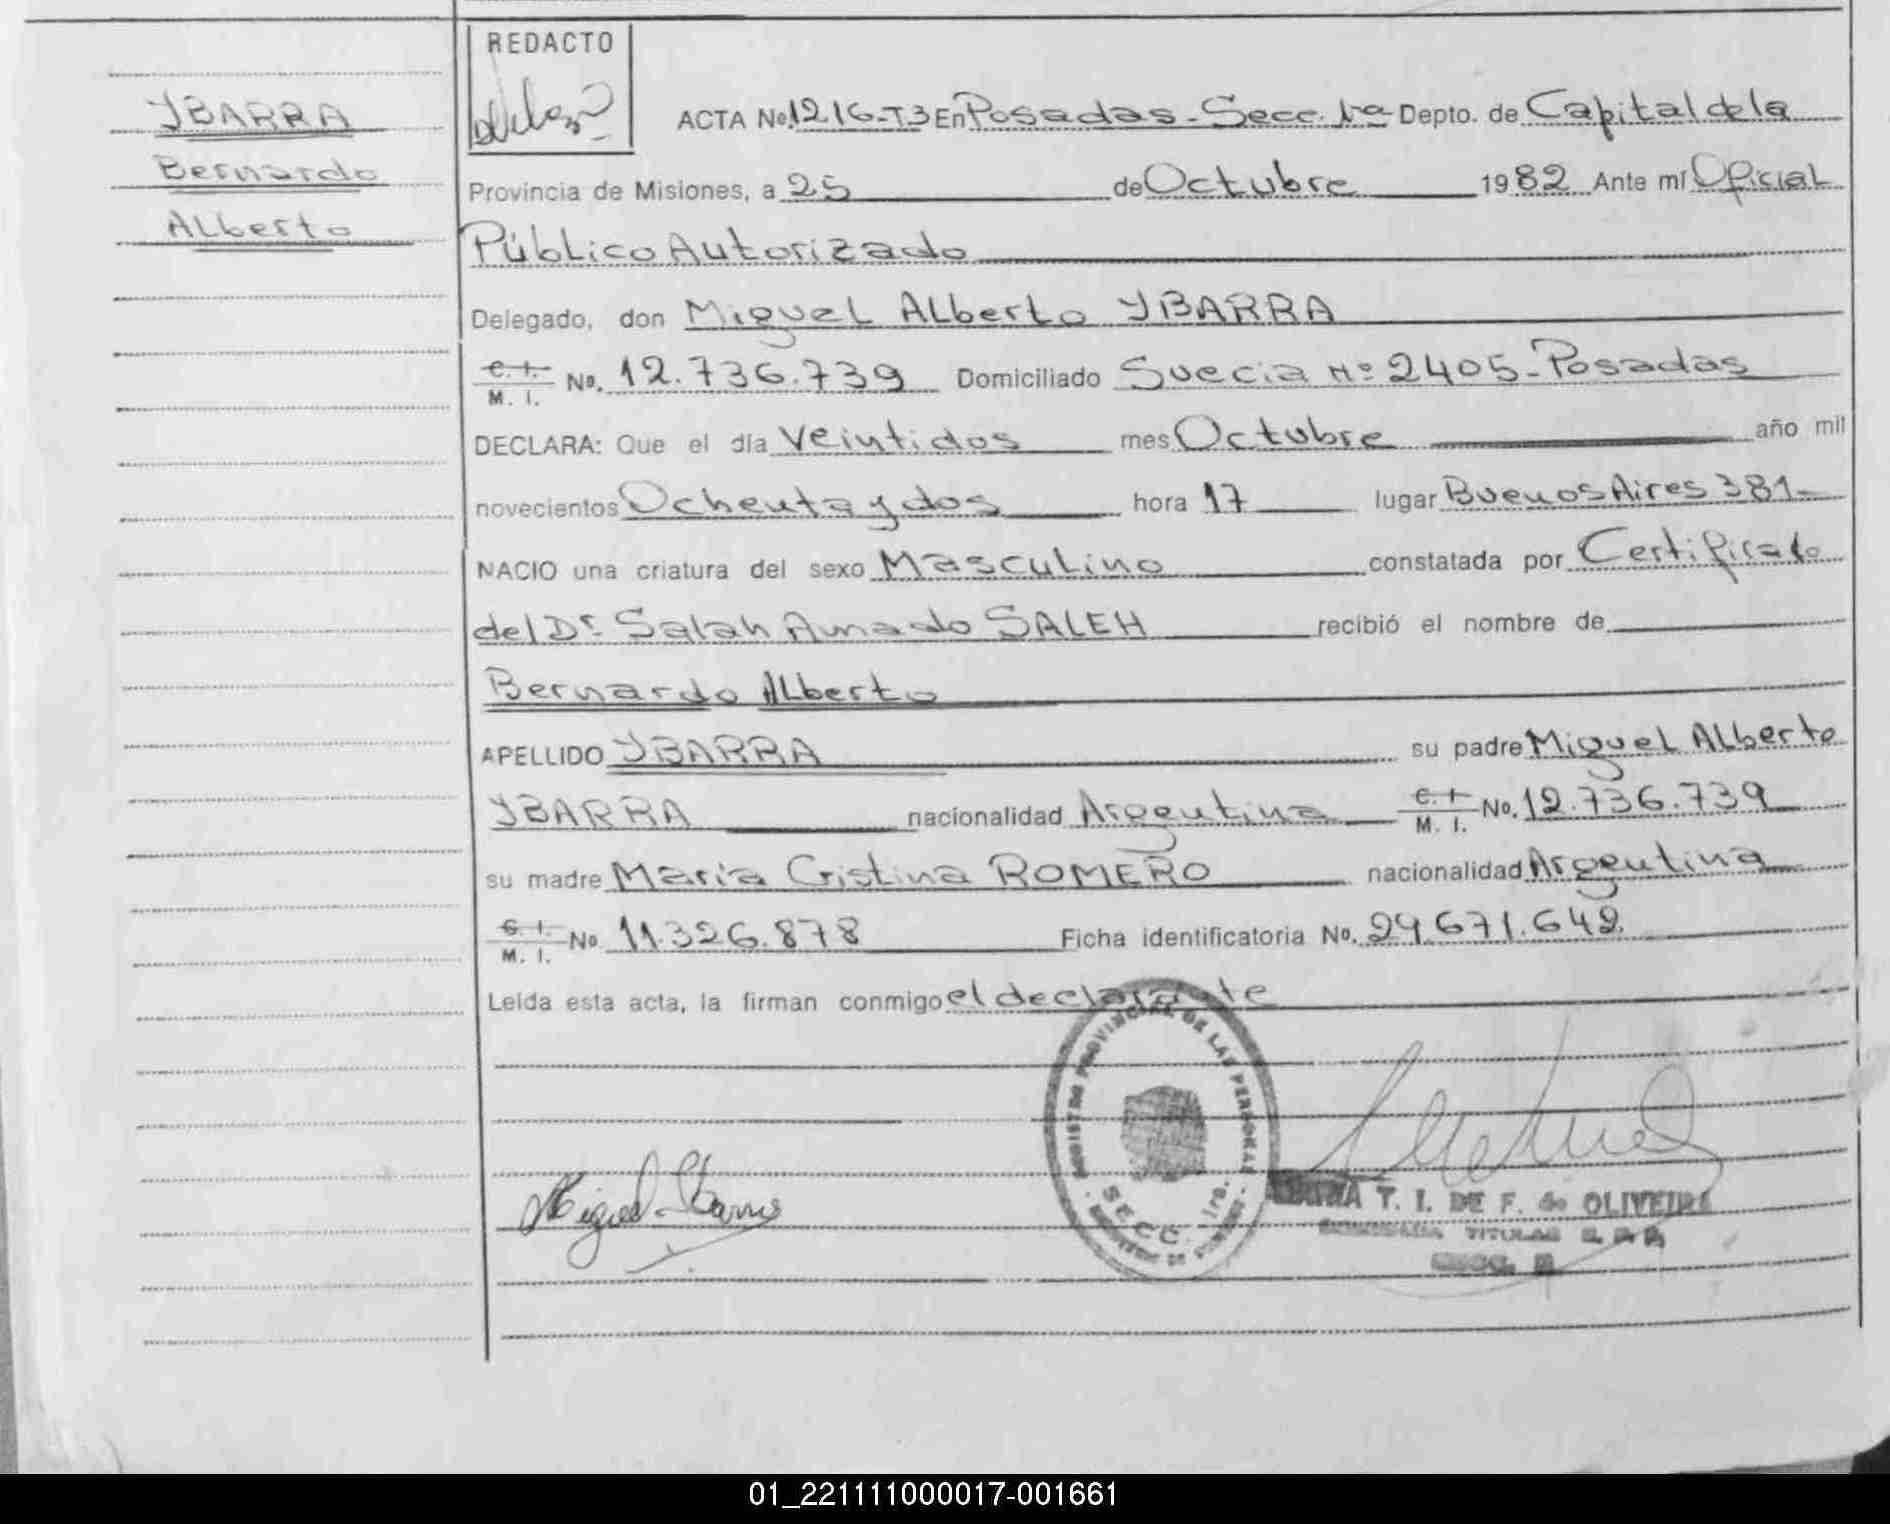 YBARRA
Bernardo
Alberto
REDACTO
ACTA No. 1216-T3 En Posadas - Secc. 1ra Depto. de Capital de la
Provincia de Misiones, a 25 de Octubre 1982 Ante mí Oficial
Público Autorizado
Delegado, don Miguel Alberto YBARRA
C. I. M. I. No. 12.736.739 Domiciliado Suecia Nº 2405 - Posadas
DECLARA: Que el día Veintidos mes Octubre año mil
novecientos Ochenta y dos hora 17 lugar Buenos Aires 381-
NACIO una criatura del sexo Masculino constatada por Certificado
del Dr. Salah Amado SALEH recibió el nombre de
Bernardo Alberto
APELLIDO YBARRA su padre Miguel Alberto
YBARRA nacionalidad Argentina C. I. M. I. No. 12.736.739
su madre María Cristina ROMERO nacionalidad Argentina
C. I. M. I. No. 11.326.878 Ficha identificatoria No. 29.671.642
Leída esta acta, la firman conmigo el declarante
REGISTRO PROVINCIAL DE LAS PERSONAS
SECC. 1ra.
Miguel Ybarra
MARIA T. I. DE F. de OLIVEIRA
TITULAR
01_221111000017-001661